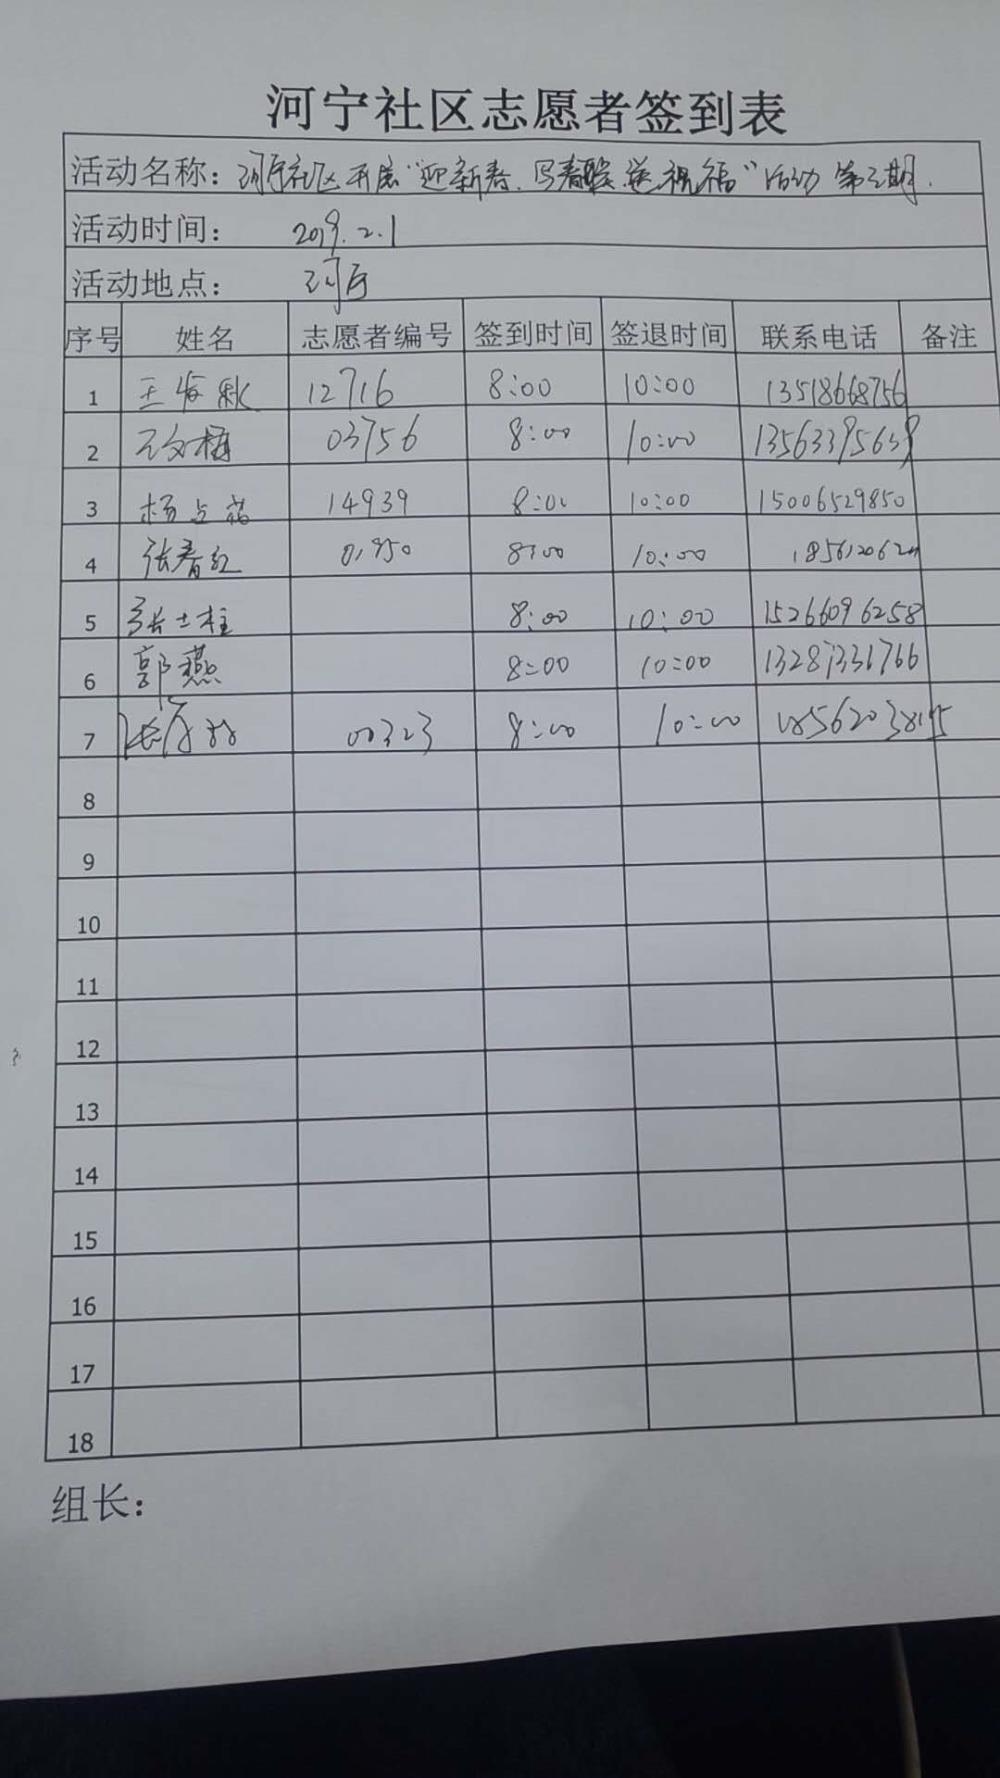 河宁社区志愿者签到表
活动名称：河宁社区开展“迎新春、写春联、送祝福”活动 第三期.
活动时间： 2019.2.1
活动地点： 河宁
序号 姓名 志愿者编号 签到时间 签退时间 联系电话 备注
1 12716 8:00 10:00 13518668756
2 03756 8:00 10:00 13563395639
3 14939 8:00 10:00 15006529850
4 张春红 01950 8:00 10:00
5 张士柱 8:00 10:00 15266096258
6 郭燕 8:00 10:00 13287331766
7 00323 8:00 10:00
8
9
10
11
12
13
14
15
16
17
18
组长：